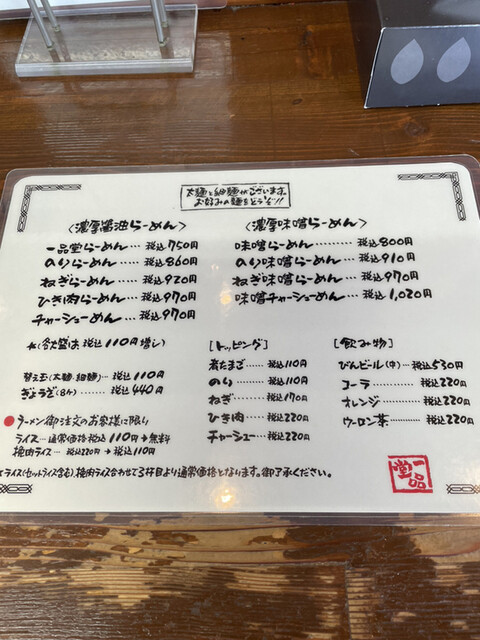 太麺と細麺がございます。
お好みの麺をどうぞ!!
〈濃厚醤油らーめん〉
一品堂らーめん… 税込750円
のりらーめん…… 税込860円
ねぎらーめん…… 税込920円
ひき肉らーめん… 税込970円
チャーシューめん… 税込970円
*(各大盛は税込110円増し)
替え玉(太麺・細麺)… 税込110円
ぎょうざ(8ケ)…… 税込440円
●ラーメン御注文のお客様に限り
ライス… 通常価格税込110円→無料
挽肉ライス… 税込220円→税込110円
〈濃厚味噌らーめん〉
味噌らーめん……… 税込800円
のり味噌らーめん… 税込910円
ねぎ味噌らーめん… 税込970円
味噌チャーシューめん… 税込1,020円
[トッピング]
煮たまご… 税込110円
のり……… 税込110円
ねぎ……… 税込170円
ひき肉…… 税込220円
チャーシュー… 税込220円
[飲み物]
びんビール(中)… 税込530円
コーラ………… 税込220円
オレンジ……… 税込220円
ウーロン茶…… 税込220円
ライス(セットライス含む)挽肉ライス合わせて3杯目より通常価格となります。御了承ください。
一品堂